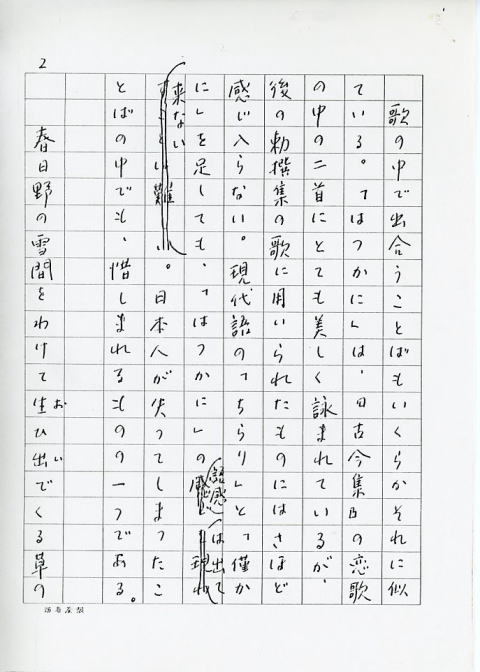 2
歌の中で出合うことばもいくらかそれに似
ている。「はつかに」は、『古今集』の恋歌
の中の二首にとても美しく詠まれているが、
後の勅撰集の歌に用いられたものにはさほど
感じ入らない。現代語の「ちらり」と「僅か
に」を足しても、「はつかに」の語感は出て
来ない。日本人が失ってしまったこ
とばの中でも、惜しまれるものの一つである。
春日野の雪間をわけて生お ひ出い でくる草の